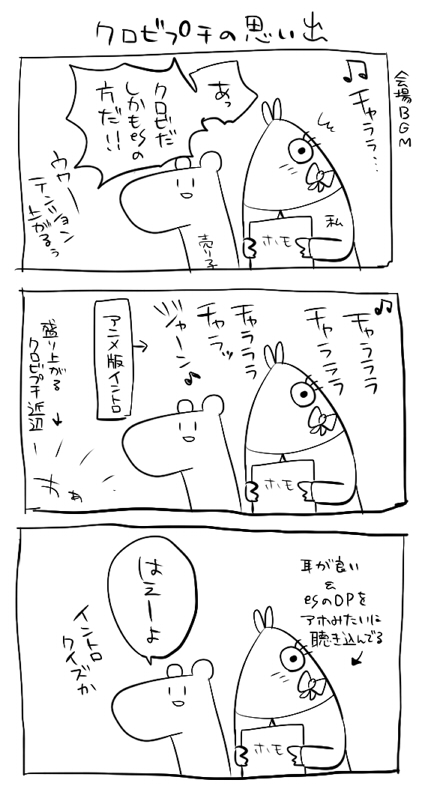 クロビプチの思い出
会場BGM
♫チャララ…
あっ
クロビだ
しかもesの
方だ!!
ウワー
テンション
上がるぅ
私
ホモ
売り子
♫チャラララ
チャラララ
チャラララ
チャラッ
ジャーン♪
アニメ版イントロ
→
盛り上がる
クロビプチ近辺
↓
わぁ
ホモ
耳が良い
&
esのOPを
アホみたいに
聴き込んでる
はえーよ
イントロ
クイズか
ホモ